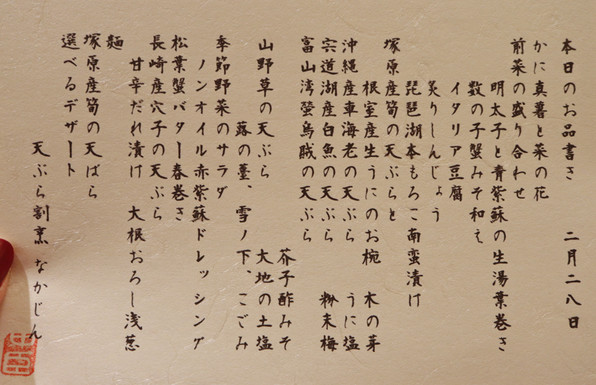 本日のお品書き　二月二八日
かに真薯と菜の花
前菜の盛り合わせ
明太子と青紫蘇の生湯葉巻き
数の子蟹みそ和え
イタリア豆腐
炙りしんじょう
琵琶湖本もろこ南蛮漬け
塚原産筍の天ぷらと
根室産生うにのお椀　木の芽
沖縄産車海老の天ぷら　うに塩
宍道湖産白魚の天ぷら　粉末梅
富山湾螢烏賊の天ぷら
芥子酢みそ
山野草の天ぷら　大地の土塩
蕗の薹、雪ノ下、こごみ
季節野菜のサラダ
ノンオイル赤紫蘇ドレッシング
松葉蟹バター春巻き
長崎産穴子の天ぷら
甘辛だれ漬け　大根おろし浅葱
麺
塚原産筍の天ばら
選べるデザート
天ぷら割烹　なかじん